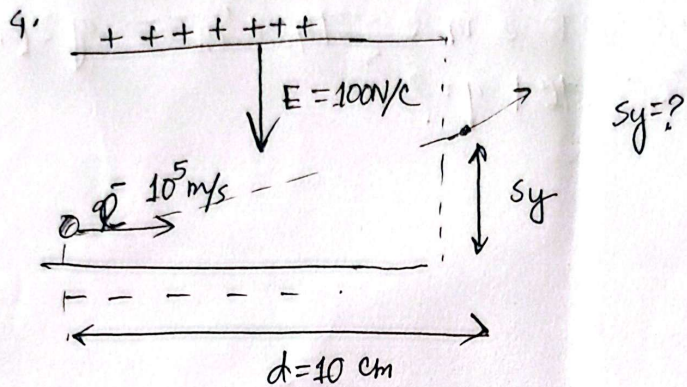 4.
+ + + + + + +
E = 100N/C
Sy=?
e⁻ 10⁵ m/s
Sy
- - - - -
d=10 cm